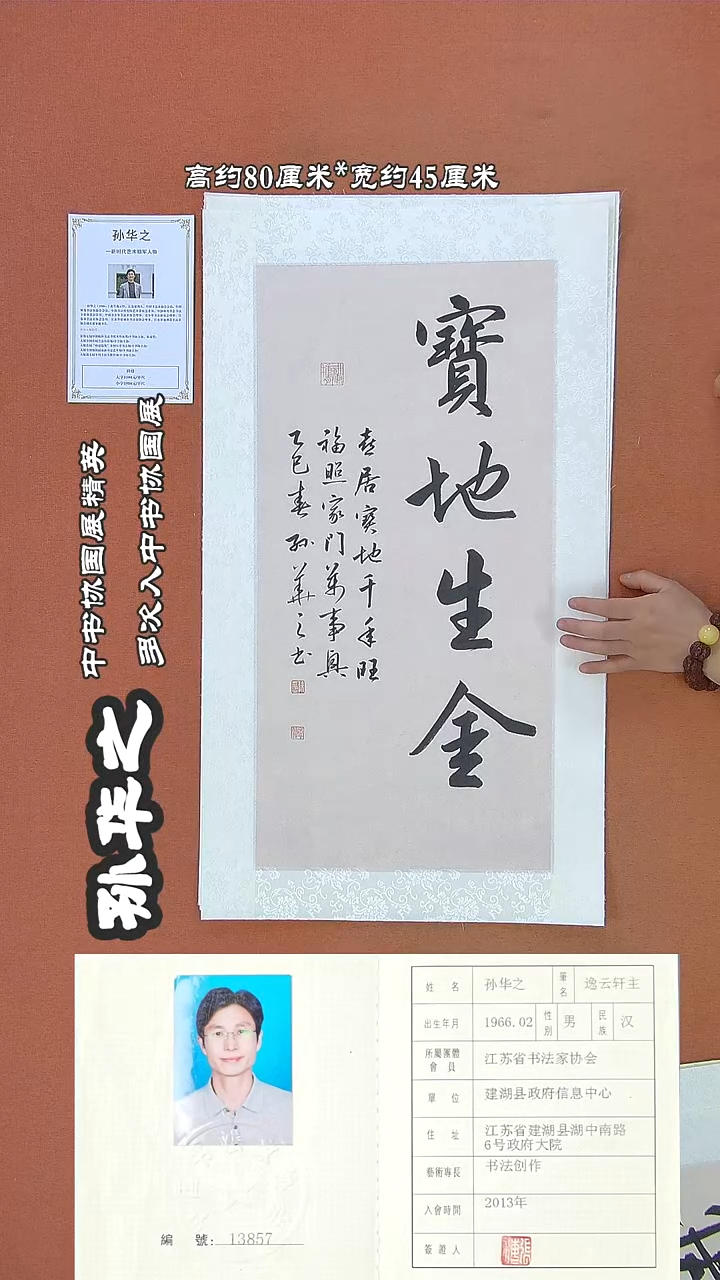 高约80厘米*宽约45厘米
孙华之
—新时代艺术领军人物
中书协国展精英
多次入中书协国展
孙华之
寶地生金
喜居寶地千年旺
福照家门萬事興
乙巳春孙華之书
姓名 孙华之 筆名 逸云轩主
出生年月 1966.02 性别 男 民族 汉
所屬團體會員 江苏省书法家协会
單位 建湖县政府信息中心
住址 江苏省建湖县湖中南路
6号政府大院
藝術專長 书法创作
入會時間 2013年
簽證人
編號:13857